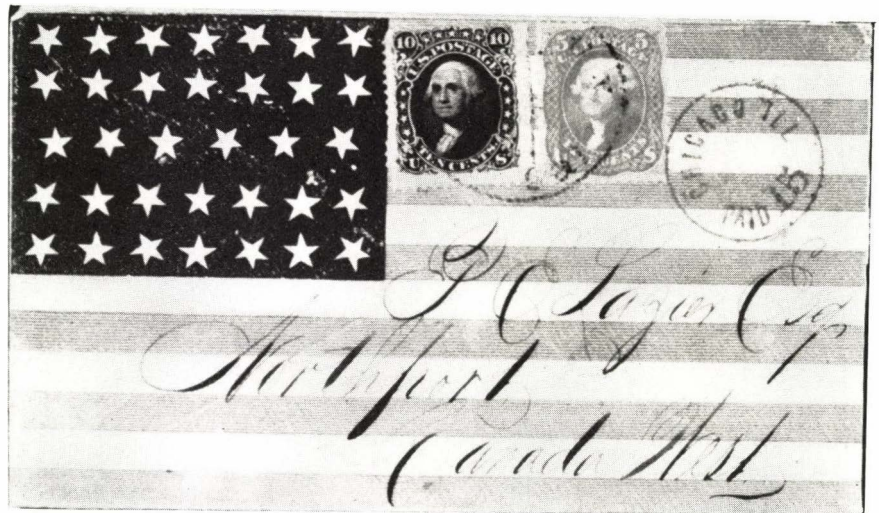 10 10
U.S. POSTAGE
TEN CENTS
U S
5 5
CHICAGO ILL
PAID 15
P C Lazier Esq
Northport
Canada West